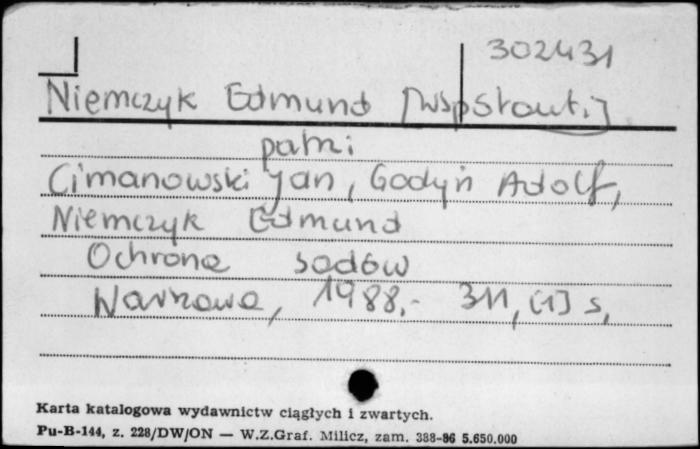 302431
Niemczyk Edmund [współaut.]
patrz
Cimanowski Jan, Godyń Adolf,
Niemczyk Edmund
Ochrona sadów
Warszawa, 1988.- 311, [1] s,
Karta katalogowa wydawnictw ciągłych i zwartych.
Pu-B-144, z. 228/DW/ON — W.Z.Graf. Milicz, zam. 388-86 5.650.000